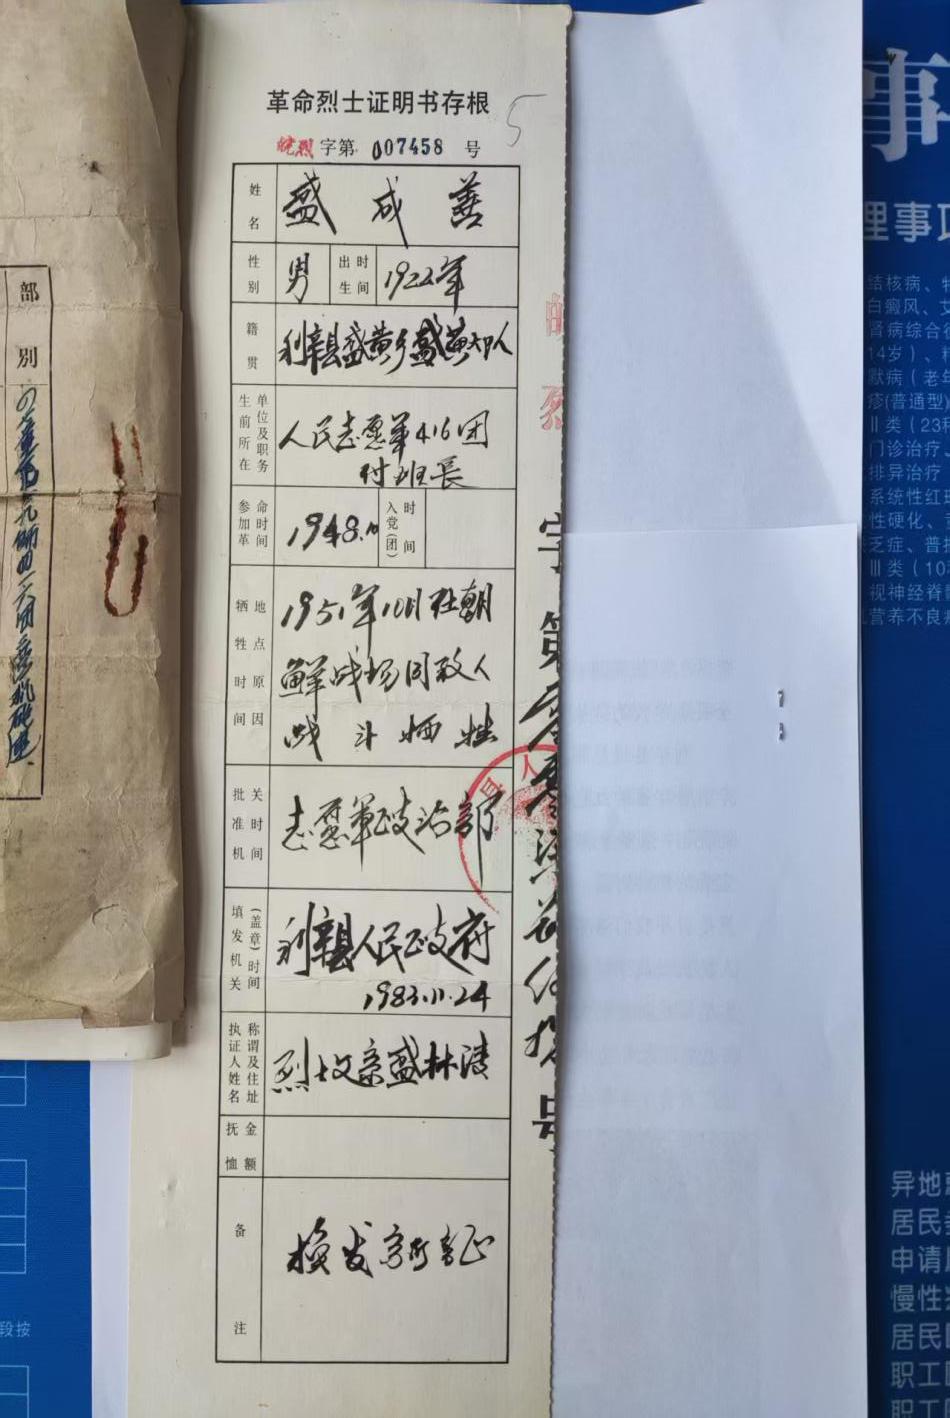 革命烈士证明书存根
5
皖烈 字第 007458 号
姓名 盛成善
性别 男 出生时间 1922年
籍贯 利辛县盛黄乡盛黄大队
生前所在单位及职务 人民志愿军416团
付班長
参加革命时间 1948.10 入党(团)时间
牺牲时间地点原因 1951年10月在朝
鲜战场同敌人
战斗牺牲
批准机关时间 志愿军政治部
填发机关(盖章)时间 利辛县人民政府
1983.11.24
执证人姓名称谓及住址 烈士父亲盛林清
抚恤金额
备注 换发新证
县人
字第
号
部别
事
理事项
结核病、
白癜风、
肾病综合
14岁）、
默病（老年
疹(普通型)
Ⅱ类（23种
门诊治疗、
排异治疗
系统性红
性硬化、
乏症、普
Ⅲ类（10
视神经脊髓
营养不良
异地
居民
申请
慢性
居民
职工
职工
段按